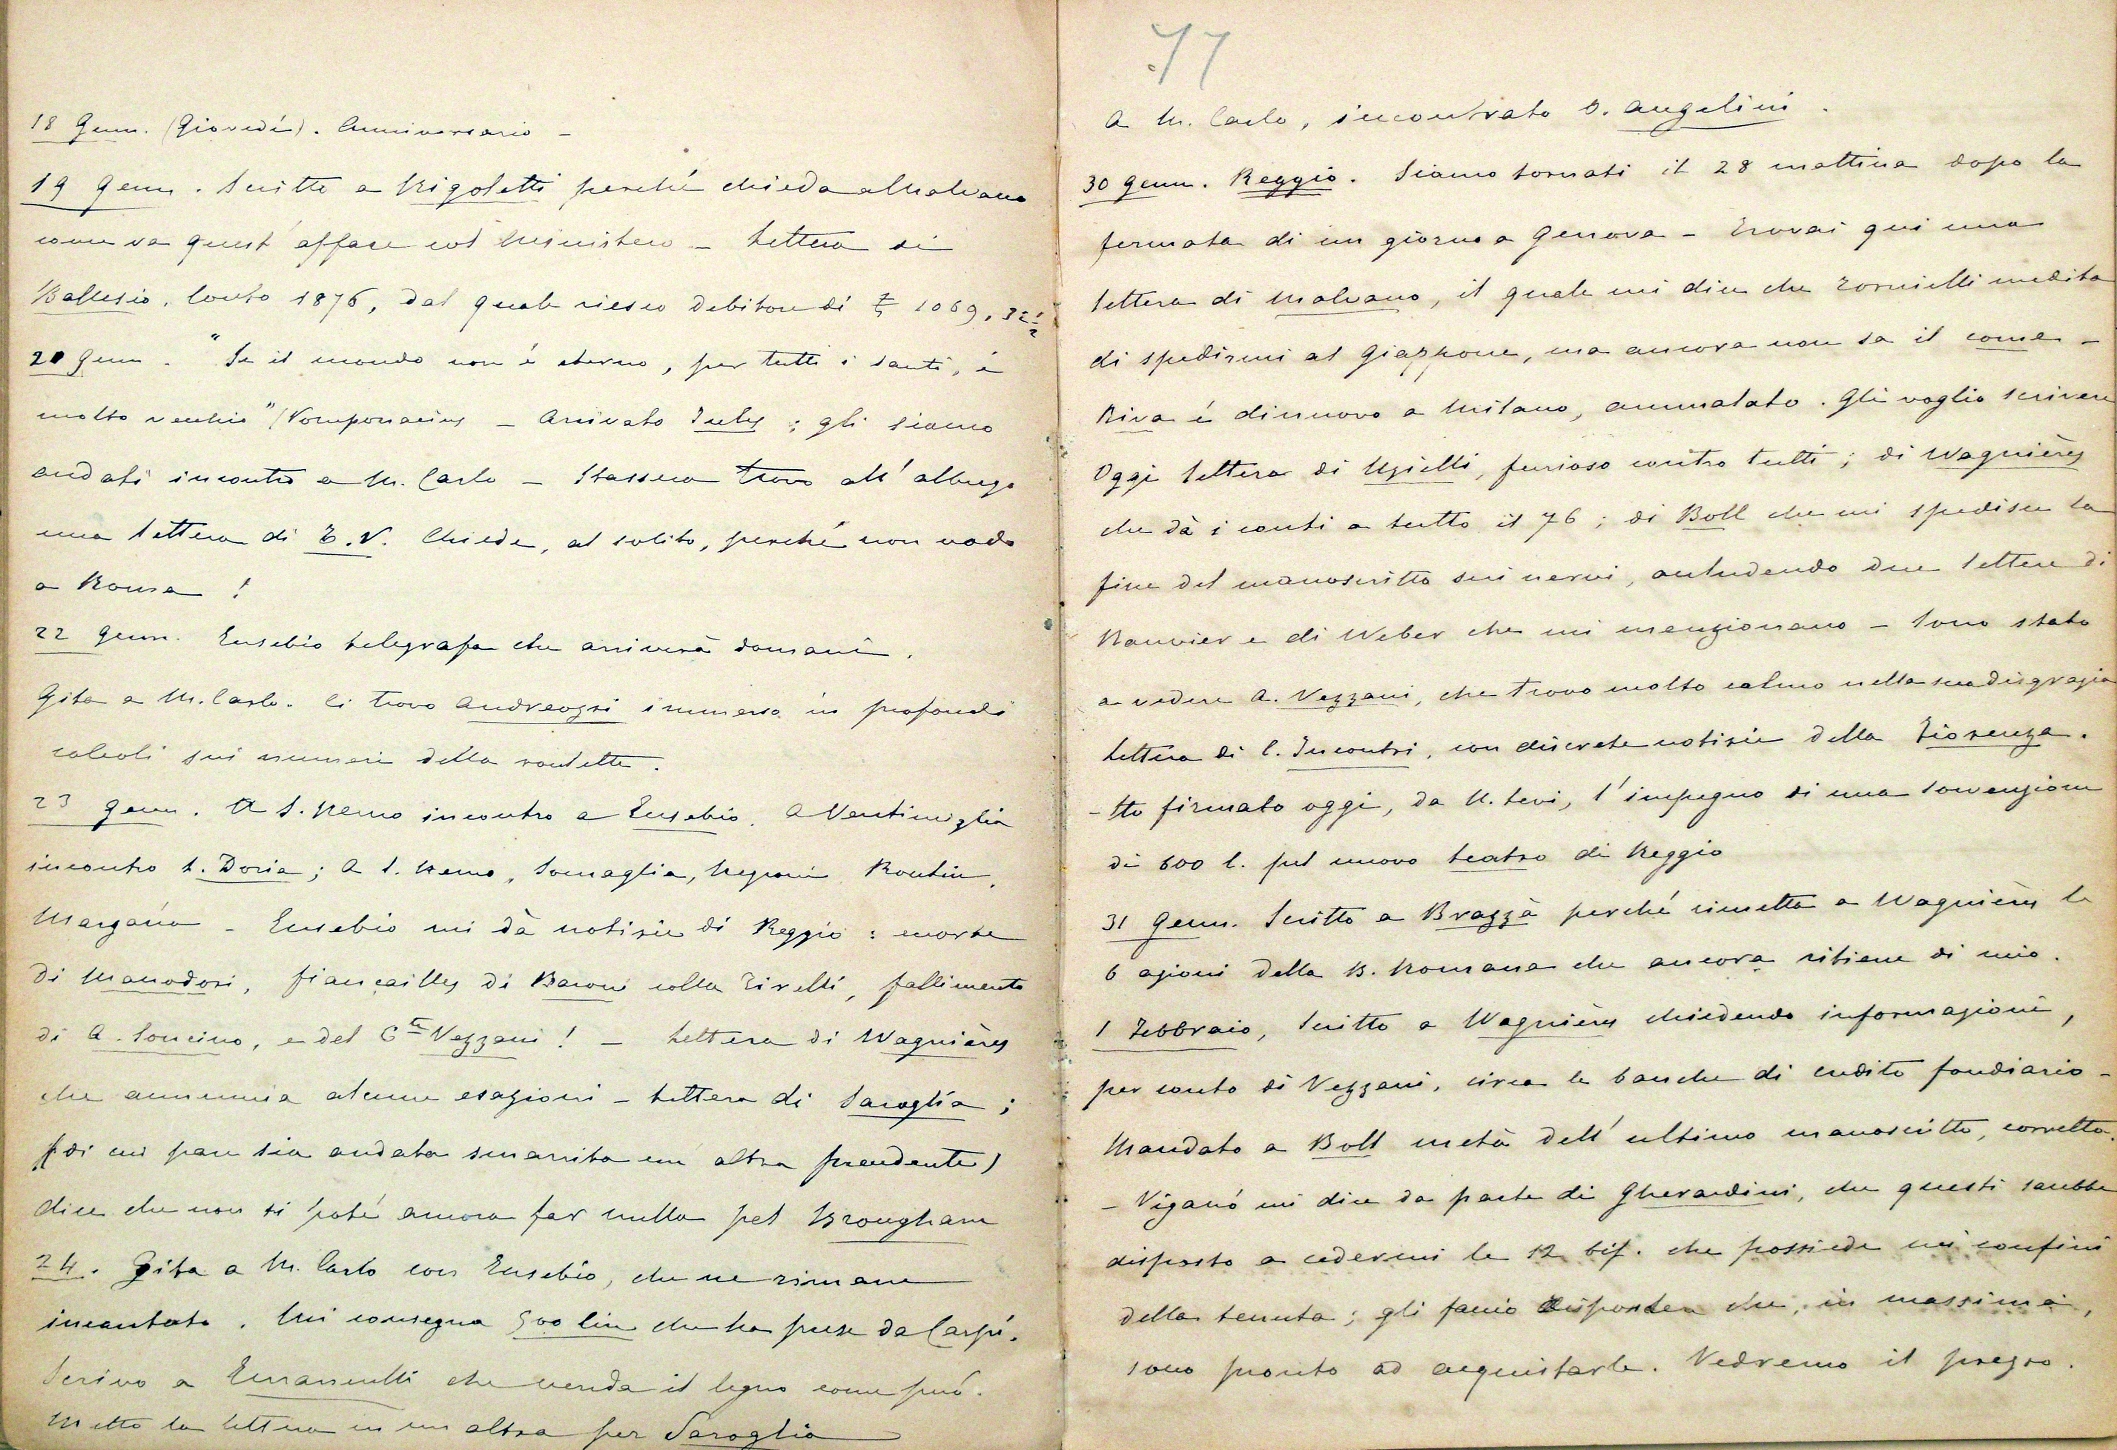 18 Genn. (Giovedì). Anniversario –
19 Genn. Scritto a Rigoletti perché chieda a Malvano
come va quest' affare col Ministero – Lettera di
Ballesio. Conto 1876, dal quale riesco debitore di £ 1069,32½
20 Genn. "Se il mondo non è eterno, per tutti i santi, è
molto vecchio" (Pomponacius – Arrivato July; gli siamo
andati incontro a M. Carlo – Stassera trovo all' albergo
una lettera di E.V. Chiede, al solito, perché non vado
a Roma!
22 Genn. Eusebio telegrafa che arriverà domani.
Gita a M. Carlo. Ci trovo Andreozzi immerso in profondi
calcoli sui numeri della roulette.
23 Genn. A S. Remo incontro a Eusebio. A Ventimiglia
incontro Doria; a S. Remo, Somaglia,
Margaria – Eusebio mi dà notizie di Reggio: morte
di Manodori, fiançailles di Baroni colla Tirelli, fallimento
di A. Soncino, e del Cte Vezzani! – Lettera di Wagnières
che annunzia alcune esazioni – Lettera di Saroglia;
(poi mi pare sia andata smarrita un altra precedente)
dice che non si poté ancora far nulla pel Brougham
24. Gita a M. Carlo con Eusebio, che ne rimane
incantato. Mi consegna 500 lire che ha prese da Carpi.
Scrivo a Emanuelli che venda il legno come può.
Metto la lettera in un altra per Saroglia
77
A M. Carlo, incontrato Angelini.
30 Genn. Reggio. Siamo tornati il 28 mattina dopo la
fermata di un giorno a Genova – Trovai qui una
lettera di Malvano, il quale mi dice che Tornielli medita
di spedirmi al Giappone, ma ancora non sa il come –
Riva è di nuovo a Milano, ammalato. Gli voglio scrivere
Oggi lettera di Uzielli, furioso contro tutti; di Wagnières
che dà i conti a tutto il 76; di Boll che mi spedisce la
fine del manoscritto sui nervi, acludendo due lettere di
Ranvier e di Weber che mi menzionano – Sono stato
a vedere A. Vezzani, che trovo molto calmo nella sua disgrazia
Lettera di C. Incontri, con discrete notizie della Fiorenza.
– Ho firmato oggi, da U. Levi, l' impegno di una sovvenzione
di 600 l. pel nuovo teatro di Reggio
31 Genn. Scritto a Brazzà perché rimetta a Wagnières le
6 azioni della B. Romana che ancora ritiene di mio.
1 Febbraio, Scritto a Wagnières chiedendo informazioni,
per conto di Vezzani, circa le banche di credito fondiario –
Mandato a Boll metà dell' ultimo manoscritto, corretto.
– Viganò mi dice da parte di Gherardini, che questi sarebbe
disposto a cedermi le 12 bif. che possiede nei confini
della tenuta; gli faccio rispondere che, in massima,
sono pronto ad acquistarle. Vedremo il prezzo.